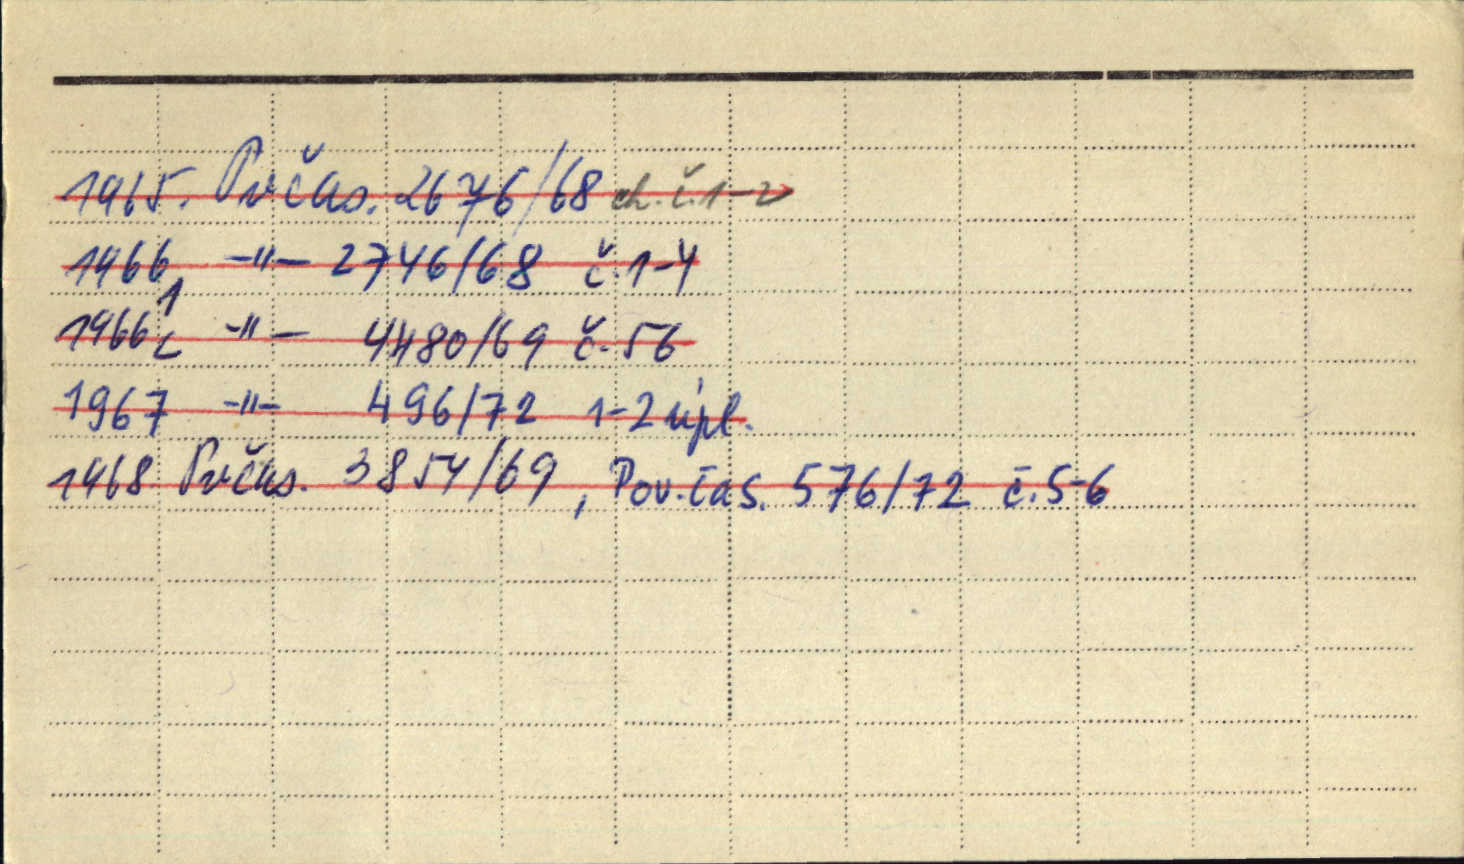 1965. Pvčas. 2676/68 ch. č. 1-2
1966, -"- 2746/68 č. 1-4
1966 1 -"- 4480/69 č. 56
1967 -"- 496/72 1-2 úpl.
1968 Pvčas. 3854/69, Pov. čas. 576/72 č. 5-6